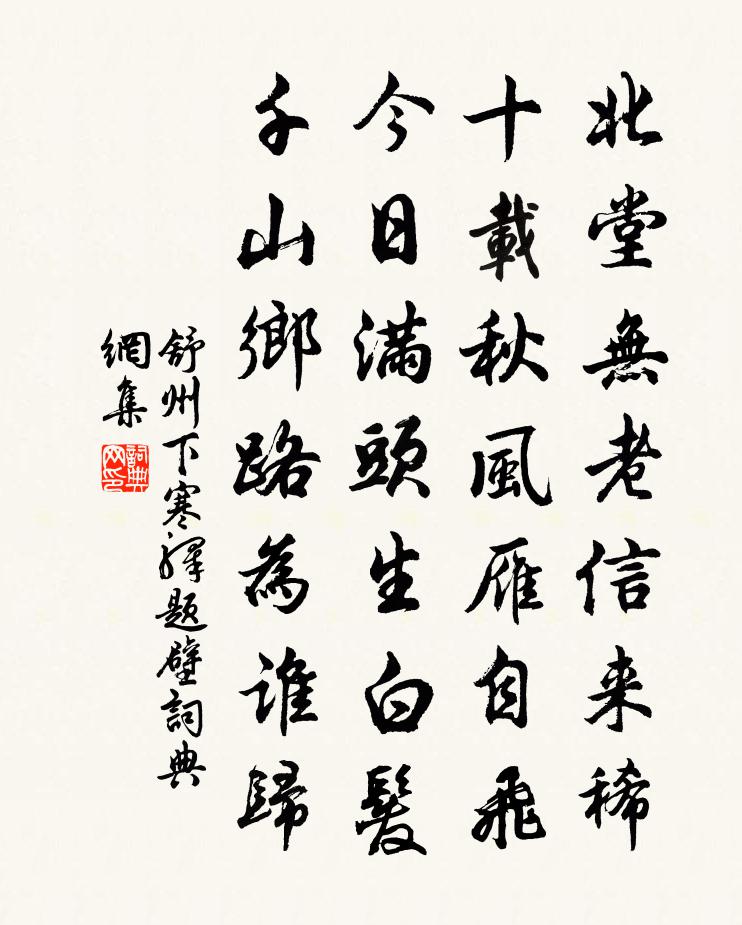 北堂無老信来稀
十載秋風雁自飛
今日滿頭生白髮
千山鄉路為誰歸
舒州下寒驛題壁詞典
網集
詞典
网印